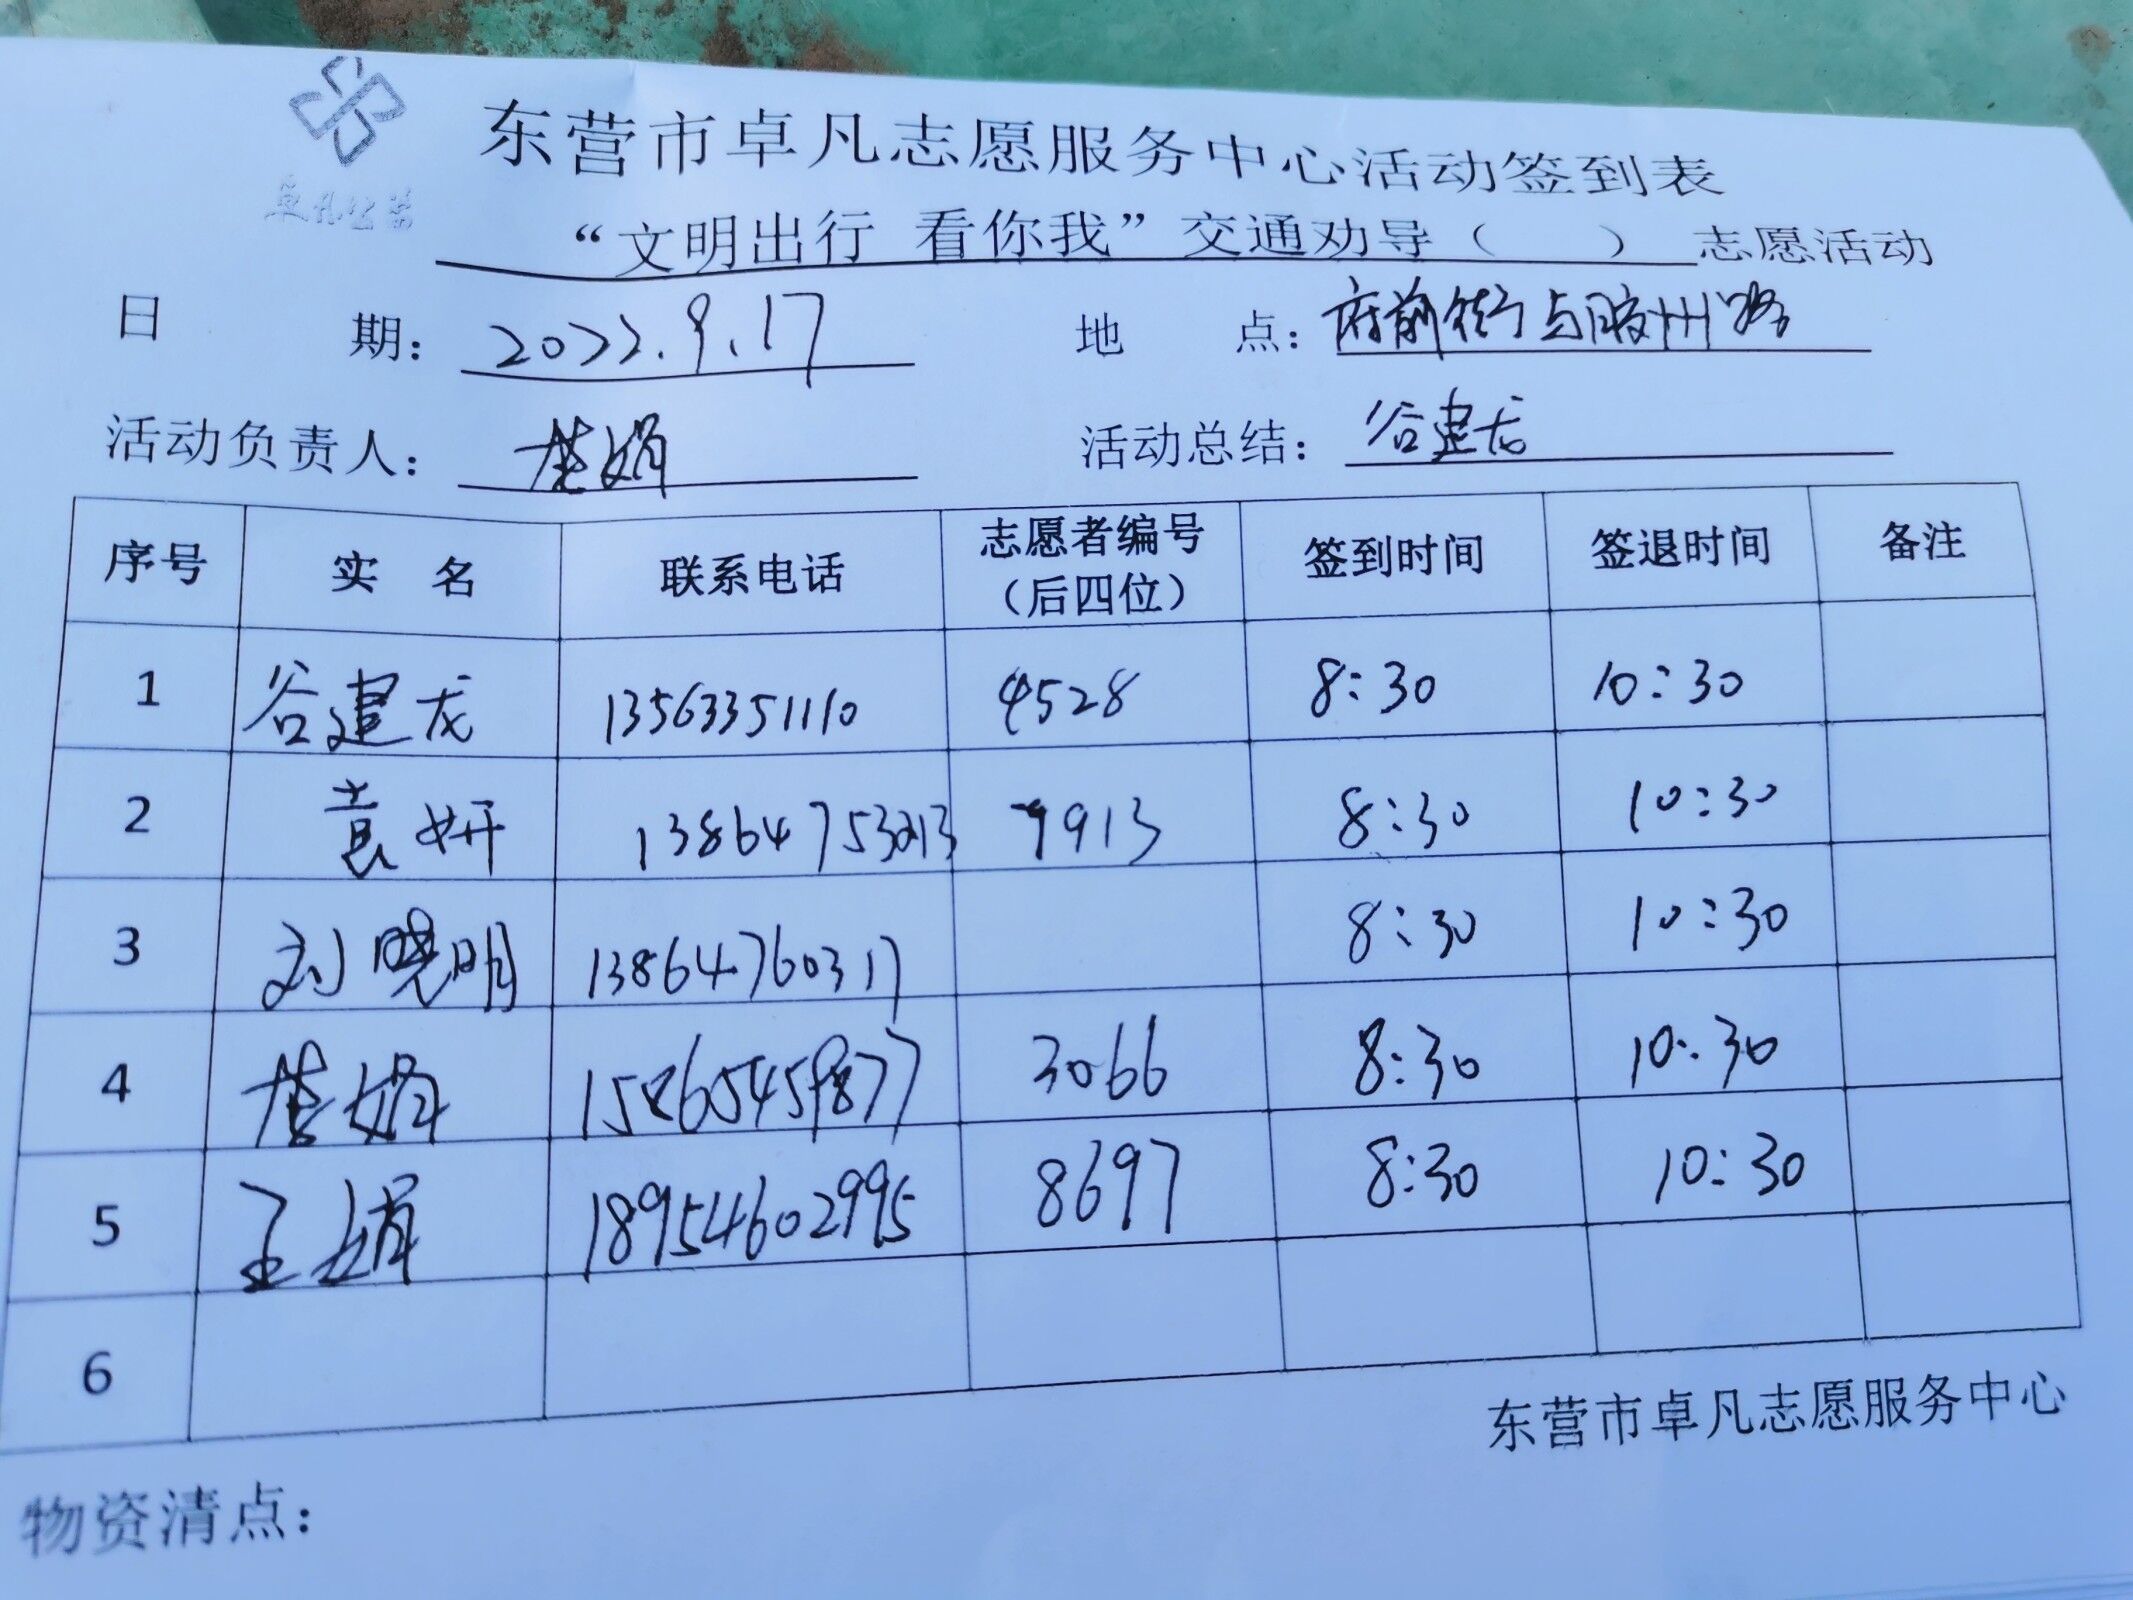 卓凡公益
东营市卓凡志愿服务中心活动签到表
“文明出行 看你我”交通劝导（ ）志愿活动
日 期： 2022.9.17 地 点： 府前街与胶州路
活动负责人： 娟 活动总结： 谷建龙
序号 实 名 联系电话 志愿者编号（后四位） 签到时间 签退时间 备注
1 谷建龙 13563351110 4528 8:30 10:30
2 袁妍 9913 8:30 10:30
3 刘晓明 13864760317 8:30 10:30
4 娟 3066 8:30 10:30
5 王娟 18954602995 8697 8:30 10:30
6
东营市卓凡志愿服务中心
物资清点：